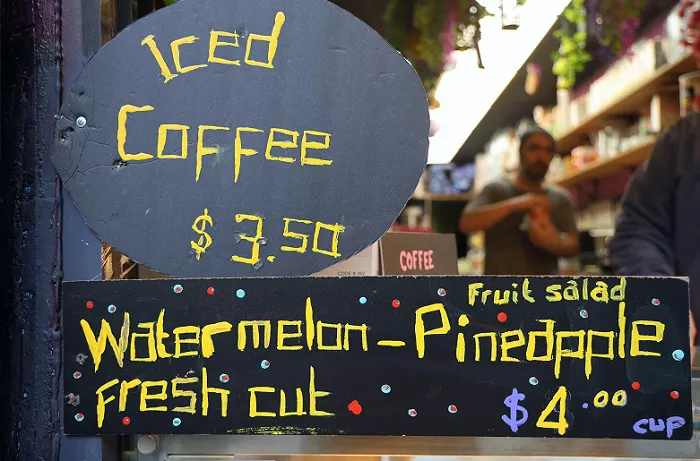 Iced
Coffee
$3.50
COFFEE
Fruit salad
Watermelon-Pineapple
fresh cut $4.00
cup